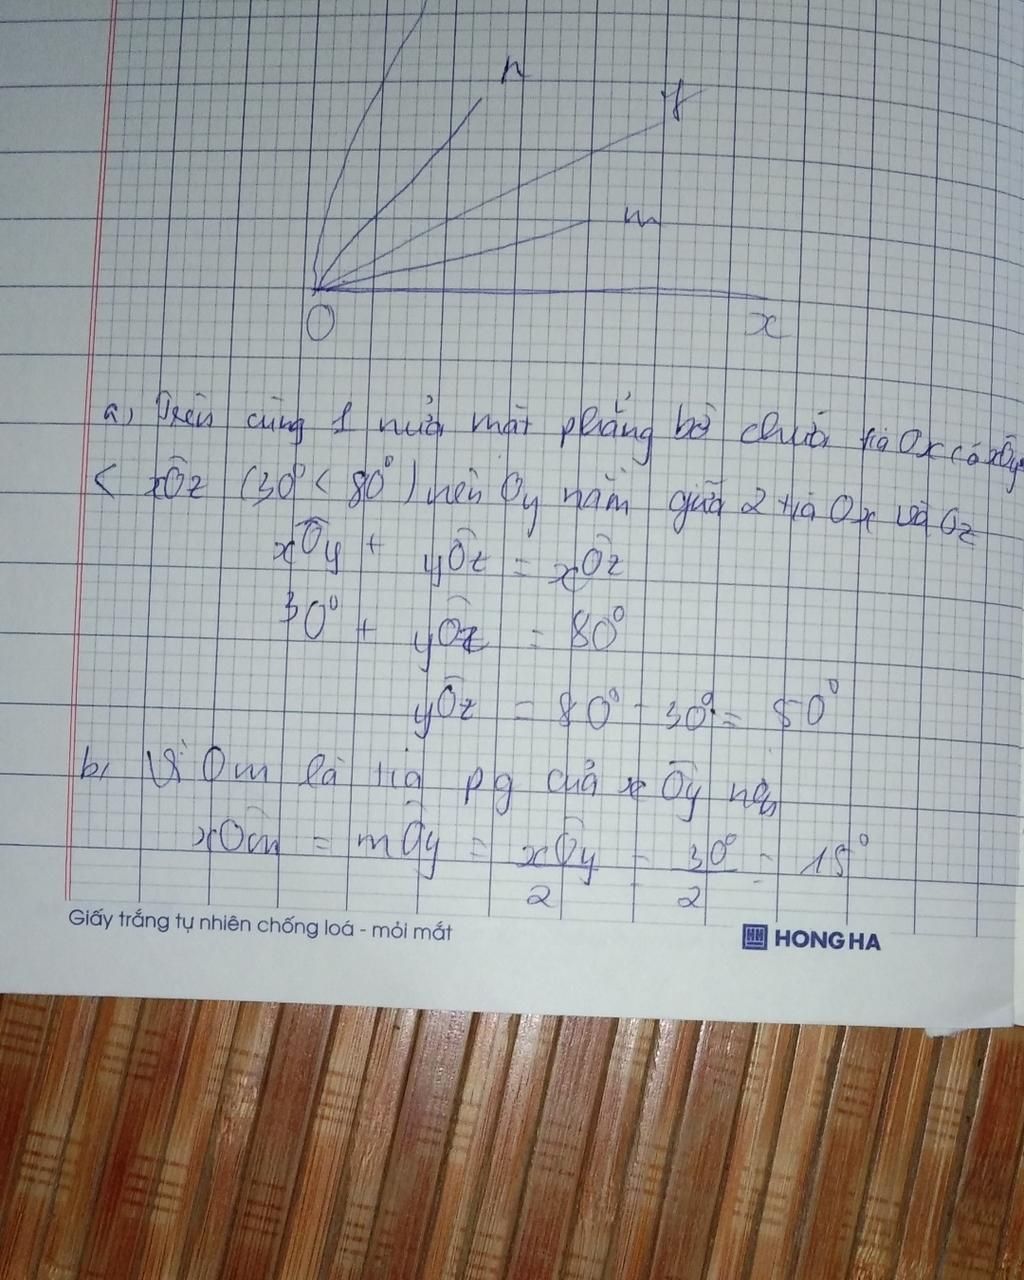 n
y
m
O
x
a, Trên cùng 1 nửa mặt phẳng bờ chứa tia Ox có xÔy
< xÔz (30° < 80°) nên Oy nằm giữa 2 tia Ox và Oz
xÔy + yÔz = xÔz
30° + yÔz = 80°
yÔz = 80° - 30° = 50°
b, Vì Om là tia pg của xÔy nên
xÔm = mÔy = xÔy/2 = 30°/2 = 15°
Giấy trắng tự nhiên chống loá - mỏi mắt
HH HONG HA